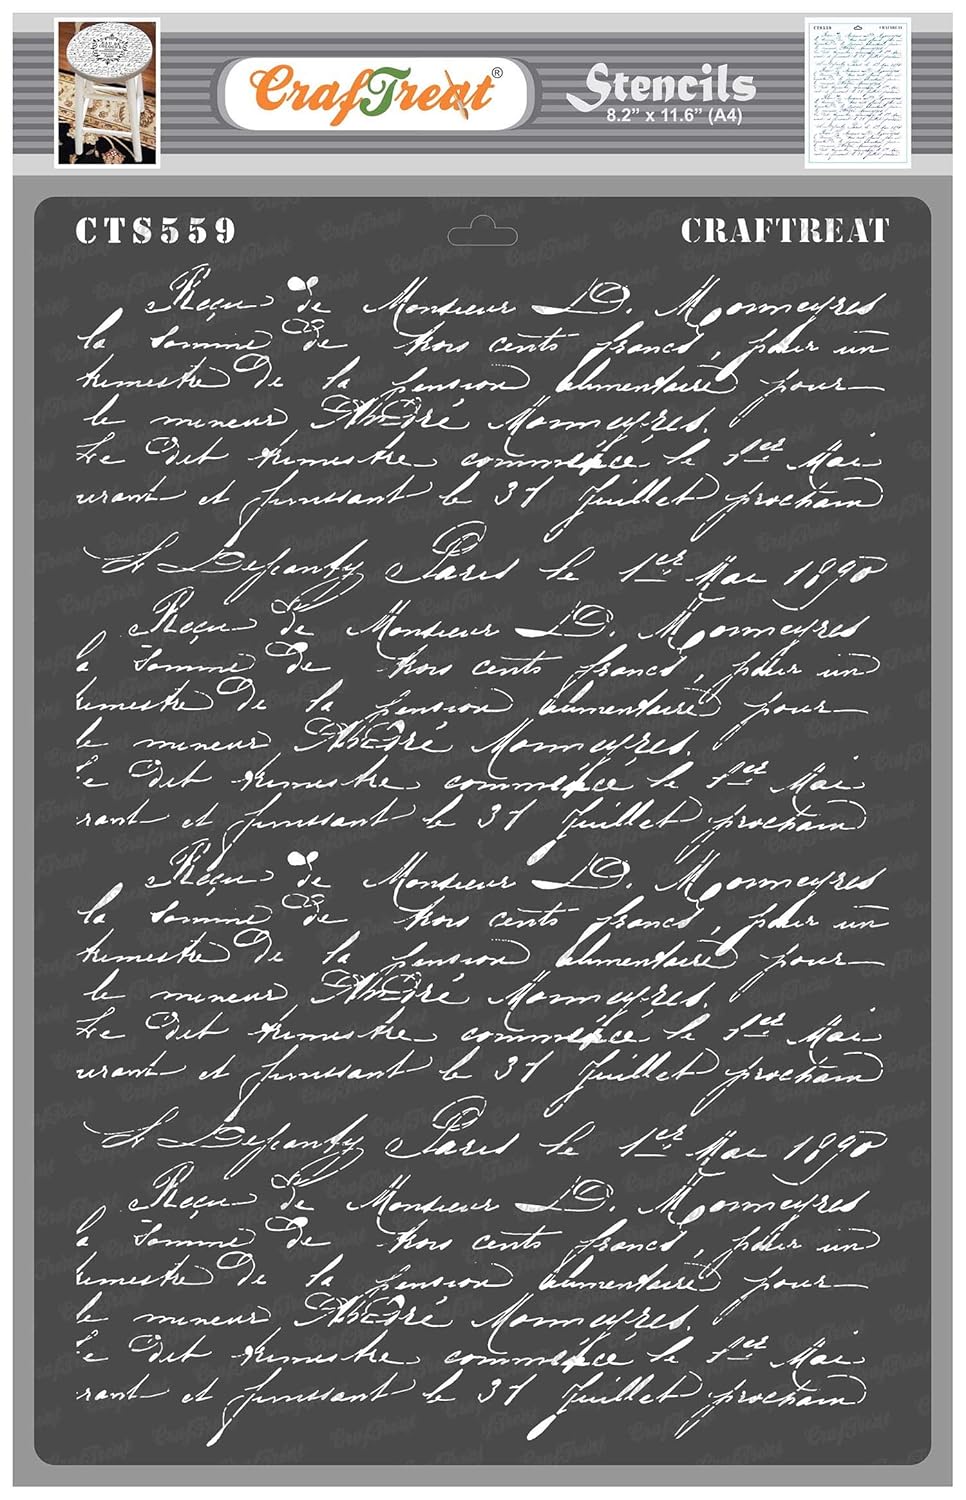 CrafTreat®
Stencils
8.2" x 11.6" (A4)
CTS559 CRAFTREAT
Reçu de Monsieur D. Monmeyres
la somme de trois cents francs, pour un
trimestre de la pension alimentaire pour
le mineur André Monmeyres.
Le dit trimestre commence le 1er Mai
urant et finissant le 31 Juillet prochain
Paris le 1er Mai 1890
Reçu de Monsieur D. Monmeyres
la somme de trois cents francs, pour un
trimestre de la pension alimentaire pour
le mineur André Monmeyres.
Le dit trimestre commence le 1er Mai
rant et finissant le 31 Juillet prochain
Reçu de Monsieur D. Monmeyres
la somme de trois cents francs, pour un
trimestre de la pension alimentaire pour
le mineur André Monmeyres.
Le dit trimestre commence le 1er Mai
urant et finissant le 31 Juillet prochain
Paris le 1er Mai 1890
Reçu de Monsieur D. Monmeyres
la somme de trois cents francs, pour un
trimestre de la pension alimentaire pour
le mineur André Monmeyres.
Le dit trimestre commence le 1er Mai
rant et finissant le 31 Juillet prochain